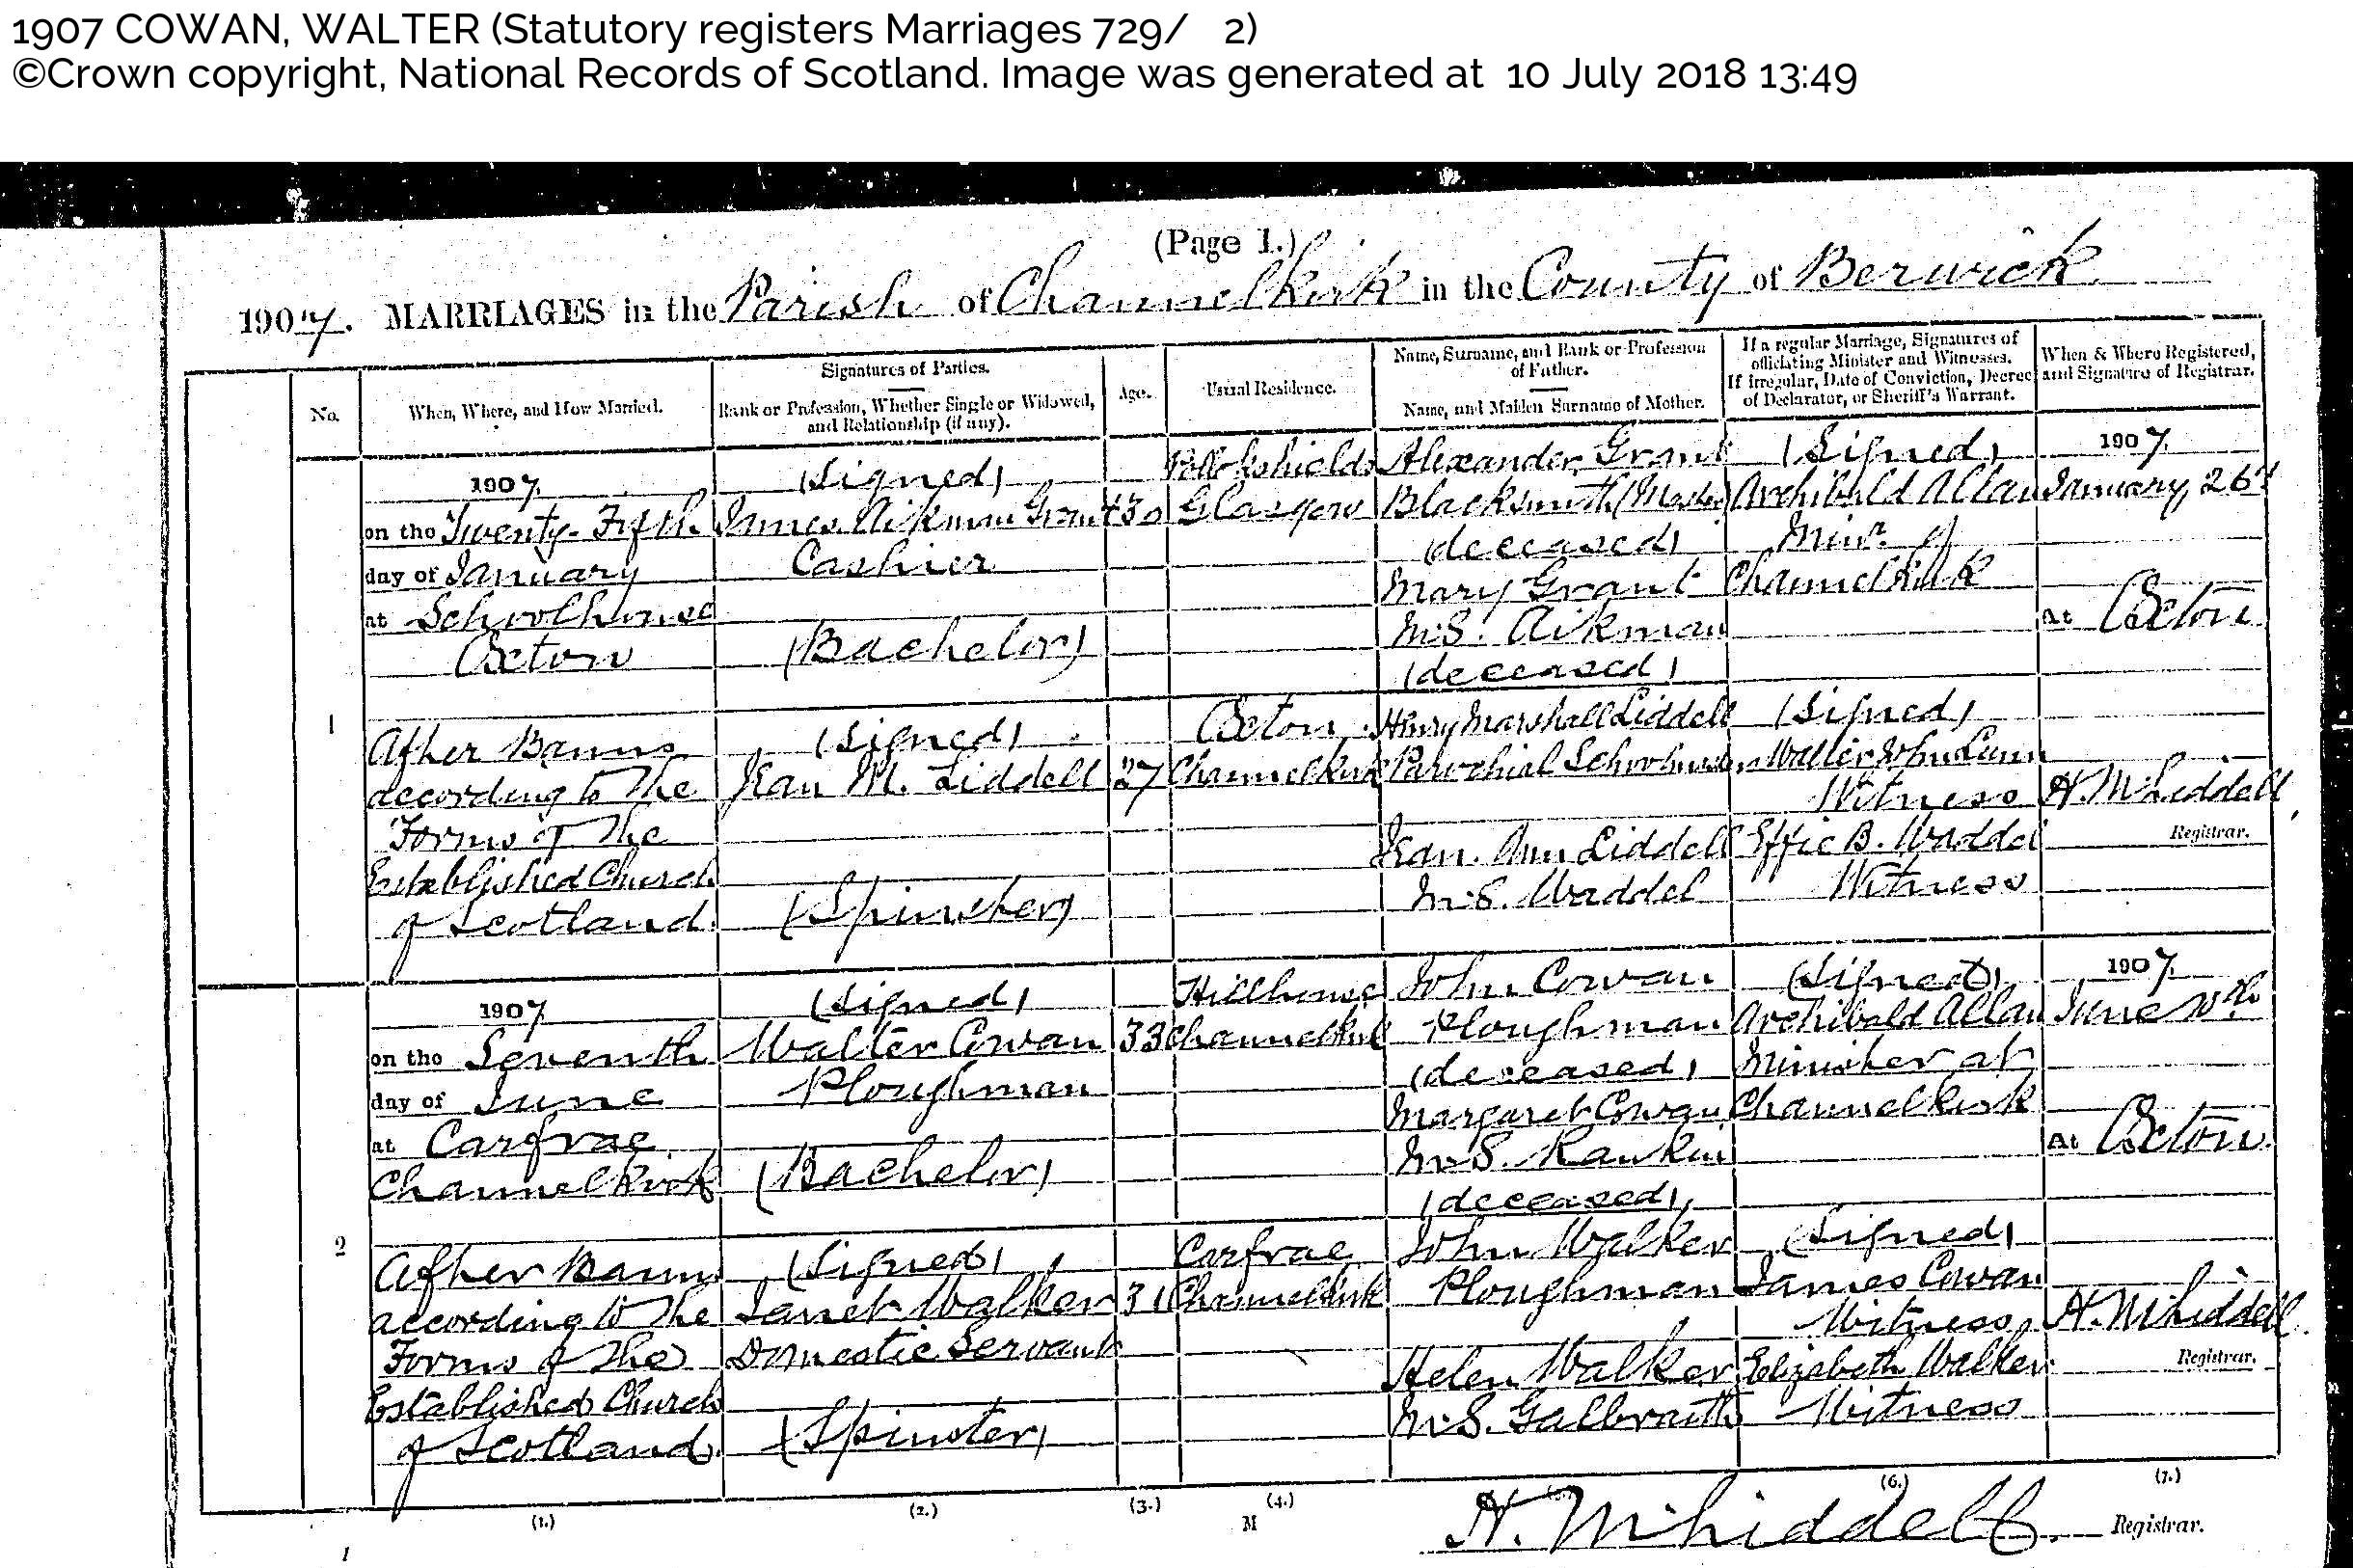 1907 COWAN, WALTER (Statutory registers Marriages 729/ 2)
©Crown copyright, National Records of Scotland. Image was generated at 10 July 2018 13:49
(Page 1.)
1907. MARRIAGES in the Parish of Channelkirk in the County of Berwick
No.
When, Where, and How Married.
Signatures of Parties.
Rank or Profession, Whether Single or Widowed,
and Relationship (if any).
Age.
Usual Residence.
Name, Surname, and Rank or Profession
of Father.
Name, and Maiden Surname of Mother.
If a regular Marriage, Signatures of
officiating Minister and Witnesses.
If irregular, Date of Conviction, Decree
of Declarator, or Sheriff's Warrant.
When & Where Registered,
and Signature of Registrar.
1
1907
on the Twenty-Fifth
day of January
at Schoolhouse
Oxton
After Banns
according to the
Forms of the
Established Church
of Scotland
(Signed)
James Aikman Grant
Cashier
(Bachelor)
(Signed)
Jean M. Liddell
(Spinster)
27
Pollokshields
Glasgow
Oxton
Channelkirk
Alexander Grant
Blacksmith (Master)
(deceased)
Mary Grant
M.S. Aikman
(deceased)
Henry Marshall Liddell
Parochial
Jean Ann Liddell
M.S. Waddel
(Signed)
Archibald Allan
Minr. of
Channelkirk
(Signed)
Walter John Lunn
Witness
Effie B. Waddel
Witness
1907
January 26th
At Oxton
H. M. Liddell
Registrar.
2
1907
on the Seventh
day of June
at Carfrae
Channelkirk
After Banns
according to the
Forms of the
Established Church
of Scotland
(Signed)
Walter Cowan
Ploughman
(Bachelor)
(Signed)
Janet Walker
Domestic Servant
(Spinster)
33
31
Hillhouse
Channelkirk
Carfrae
Channelkirk
John Cowan
Ploughman
(deceased)
Margaret Cowan
M.S. Rankin
(deceased)
John Walker
Ploughman
Helen Walker
M.S. Galbraith
(Signed)
Archibald Allan
Minister at
Channelkirk
(Signed)
James Cowan
Witness
Elizabeth Walker
Witness
1907
June
At Oxton
H. M. Liddell
Registrar.
(1.)
(2.)
(3.)
(4.)
(6.)
(7.)
M
H. M. Liddell Registrar.
1